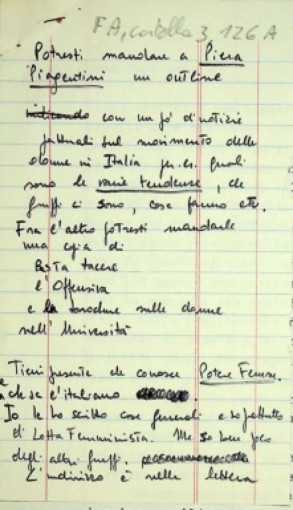 FA, cartella 3, 126 A
Potresti mandare a Piera
Piagentini un outline
indicando con un pò d'notizie
fattuali sul movimento delle
donne in Italia per es. quali
sono le varie tendenze, che
gruppi ci sono, cosa fanno etc.
Fra l'altro potresti mandarle
una copia di
Basta tacere
l'Offensiva
e la brochure sulle donne
nell'Università
Tieni presente che conosce Potere Femm.
anche se l'italiano
Io le ho scritto cose generali e soprattutto
di Lotta Femminista. Me so ben poco
degli altri gruppi.
L'indirizzo è nella lettera